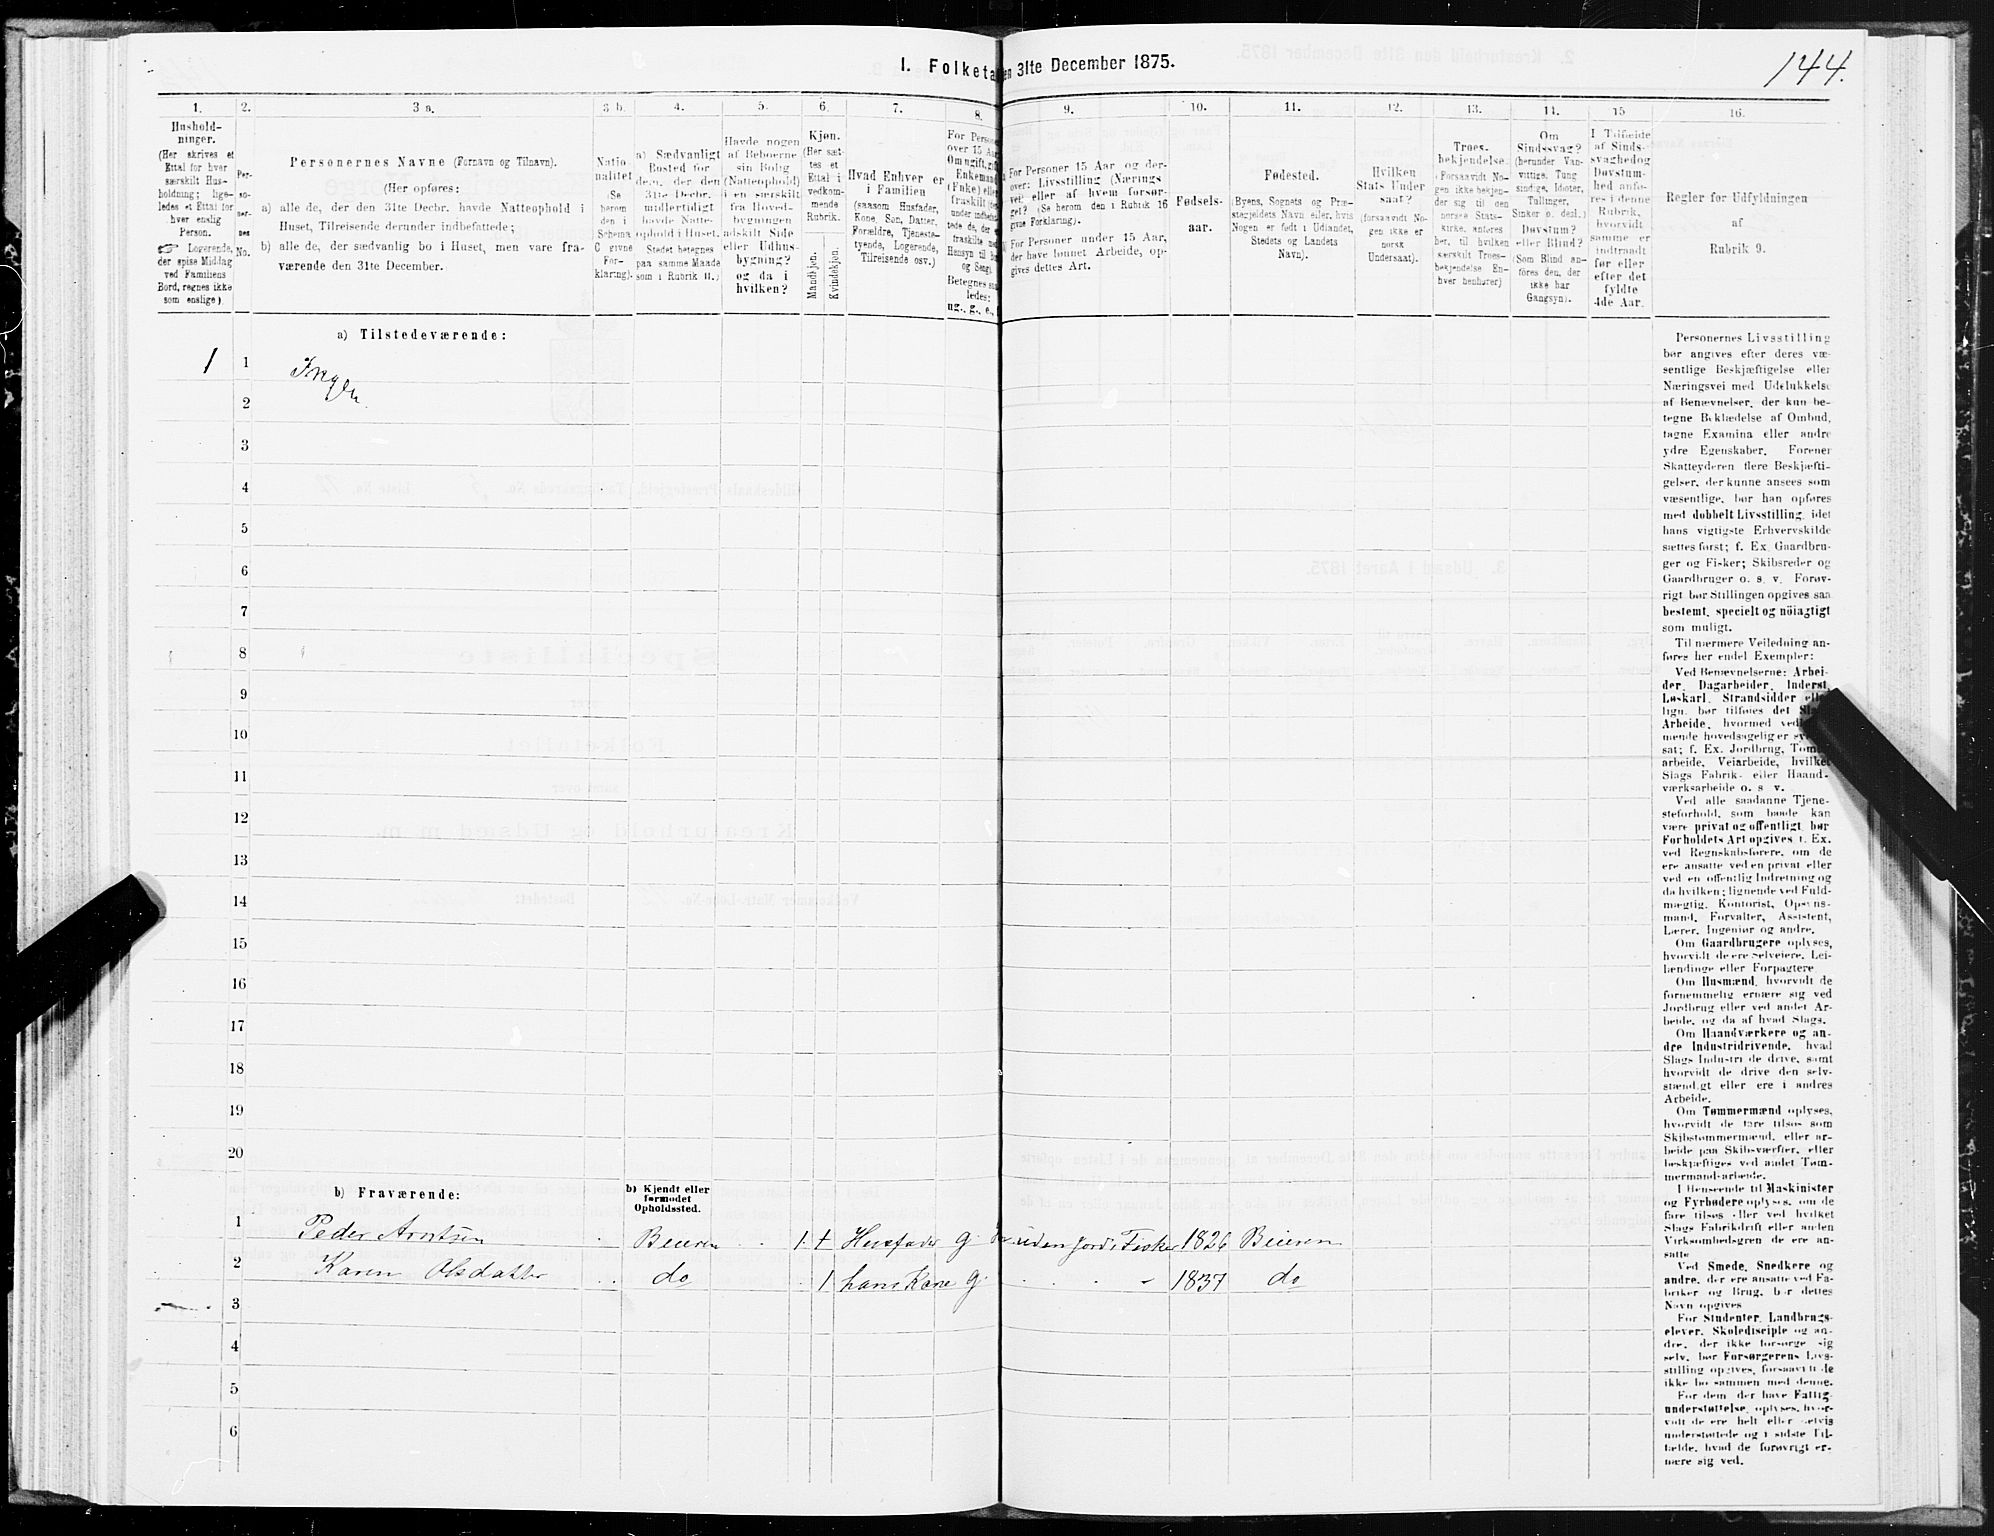 144.
I. Folketa en 31te December 1875.
1. 2. 3 a. 3 b. 4. 5. 6. 7. 8. 9. 10. 11. 12. 13. 14. 15 16.
Hushold-
ninger.
(Her skrives et
Ettal for hver
særskilt Hus-
holdning; lige-
ledes et Ettal for
hver enslig
Person.
Logerende,
der spise Middag
ved Familiens
Bord, regnes ikke
som enslige).
Per-
so-
ner-
nes
No.
Personernes Navne (Fornavn og Tilnavn).
(Her opføres:
a) alle de, der den 31te Decbr. havde Natteophold i
Huset, Tilreisende derunder indbefattede;
b) alle de, der sædvanlig bo i Huset, men vare fra-
værende den 31te December.
Natio
nalitet
(Se
herom
den i
Schema
C givne
For-
klaring).
a) Sædvanligt
Bosted for
dem, der den
31te Decbr.
midlertidigt
havde Natte-
ophold i Huset.
Stedet betegnes
paa samme Maade
som i Rubrik 11.)
Havde nogen
af Beboerne
sin Bolig
(Natteophold)
i en særskilt
fra Hoved-
bygningen
adskilt Side
eller Udhus-
bygning?
og da i
hvilken?
Kjøn.
(Her sæt-
tes et
Ettal i
vedkom-
mende
Rubrik.
Mandkjøn.
Kvindekjøn.
Hvad Enhver er
i Familien
(saasom Husfader,
Kone, Søn, Datter,
Forældre, Tjeneste-
tyende, Logerende,
Tilreisende osv.)
For Person
over 15 Aa
Om ugift, gi
Enkemand
(Enke) elle
fraskilt
under indbe
tede de, der
fraskilte
Hensyn til
og Seng).
Betegnes
ledes:
ug., g., e.,
For Personer 15 Aar og der-
over: Livsstilling (Nærings
vei) eller af hvem forsør-
get? (Se herom den i Rubrik 16
givne Forklaring).
For Personer under 15 Aar,
der have lønnet Arbeide, op-
gives dettes Art.
Fødsels-
aar.
Fødested.
(Byens, Sognets og Præ-
stegjeldets Navn eller, hvis
Nogen er født i Udlandet,
Stedets og Landets
Navn).
Hvilken
Stats Under
saat?
(forsaavidt No-
gen ikke er
norsk
Undersaat).
Troes-
bekjendelse.
(Forsaavidt No-
gen ikke bekjen-
der sig til den
norske Stats-
kirke, anføres
her, til hvilken
særskilt Troes-
bekjendelse En-
hver henhører)
Om
Sindssvag?
(herunder Van-
vittige, Tung
sindige, Idioter,
Tullinger,
Sinker o. desl.)
Døvstum?
eller Blind?
(Som Blind an-
føres den, der
ikke har
Gangsyn).
I Tilfælde
af Sinds-
svaghed og
Døvstum-
hed anfø-
res i denne
Rubrik,
hvorvidt
samme er
indtraadt
før eller
efter det
fyldte
4de Aar.
Regler for Udfyldningen
af
Rubrik 9.
a) Tilstedeværende:
1 1 Ingen
2
3
4
5
6
7
8
9
10
11
12
13
14
15
16
17
18
19
20
b) Fraværende:
b) Kjendt eller
formodet
Opholdssted.
1 Peder Arntsen Beieren 1 Husfader g. uden Jord, Fisker 1826 Beieren
2 Karen Olsdatter do 1 hans Kone g. 1837 do
3
4
5
6
Personernes Livsstilling
bør angives efter deres væ-
sentlige Beskjæftigelse eller
Næringsvei med Udelukkelse
af Benævnelser, der kun be-
tegne Beklædelse af Ombud,
tagne Examina eller andre
ydre Egenskaber. Forener
Skatteyderen flere Beskjæfti-
gelser, der kunne ansees som
væsentlige, bør han opføres
med dobbelt Livsstilling, idet
hans vigtigste Erhvervskilde
sættes først; f. Ex. Gaardbru-
ger og Fisker; Skibsreder og
Gaardbruger o. s. v. Forøv-
rigt bør Stillingen opgives saa
bestemt, specielt og nöiagtigt
som muligt.
Til nærmere Veiledning an-
føres her endel Exempler:
Ved Benævnelserne: Arbei-
der, Dagarbeider, Inderst,
Løskarl, Strandsidder
lign. bør tilføies det
Arbeide, hvormed
mende hovedsagelig er
sat; f. Ex. Jordbrug,
arbeide, Veiarbeide, hvilket
Slags Fabrik- eller Haand-
værksarbeide o. s. v.
Ved alle saadanne Tjene-
steforhold, som baade kan
være privat og offentligt, bør
Forholdets Art opgives, f. Ex.
ved Regnskabsførere, om de
ere ansatte ved en privat eller
ved en offentlig Indretning og
da hvilken; lignende ved Fuld-
mægtig, Kontorist, Opsyns-
mand, Forvalter, Assistent,
Lærer, Ingeniør og andre.
Om Gaardbrugere oplyses,
hvorvidt de ere Selveiere, Lei-
lændinge eller Forpagtere.
Om Husmænd, hvorvidt de
fornemmelig ernære sig ved
Jordbrug eller ved andet Ar-
beide, og da af hvad Slags.
Om Haandværkere og an-
dre Industridrivende, hvad
Slags Industri de drive, samt
hvorvidt de drive den selv-
stændigt eller ere i andres
Arbeide.
Om Tømmermænd oplyses,
hvorvidt de fare tilsøs som
Skibstømmermænd, eller ar-
beide paa Skibsværfter, eller
beskjæftiges ved andet Tøm-
mermand-arbeide.
I Henseende til Maskinister
og Fyrbødere oplyses, om de
fare tilsøs eller ved hvilket
Slags Fabrikdrift eller anden
Virksomhedsgren de ere an-
satte
Ved Smede, Snedkere og
andre, der ere ansatte ved Fa-
briker og Brug, bør dettes
Navn opgives
For Studenter, Landbrugs-
elever, Skoledisciple og an-
dre, der ikke forsørge sig
selv, bør Forsørgerens Livs-
stilling opgives, forsaavidt de
ikke bo sammen med denne.
For dem, der have Fattig-
understøttelse, oplyses, hvor-
vidt de ere helt eller delvis
understøttede og i sidste Til-
fælde, hvad de forøvrigt er-
nære sig ved.